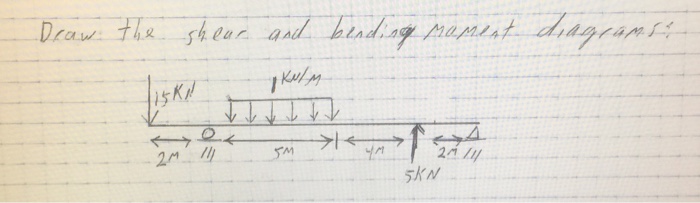 Draw the shear and bending moment diagrams:
1 KN/M
15KN
2M 5M 4M 2M
5KN